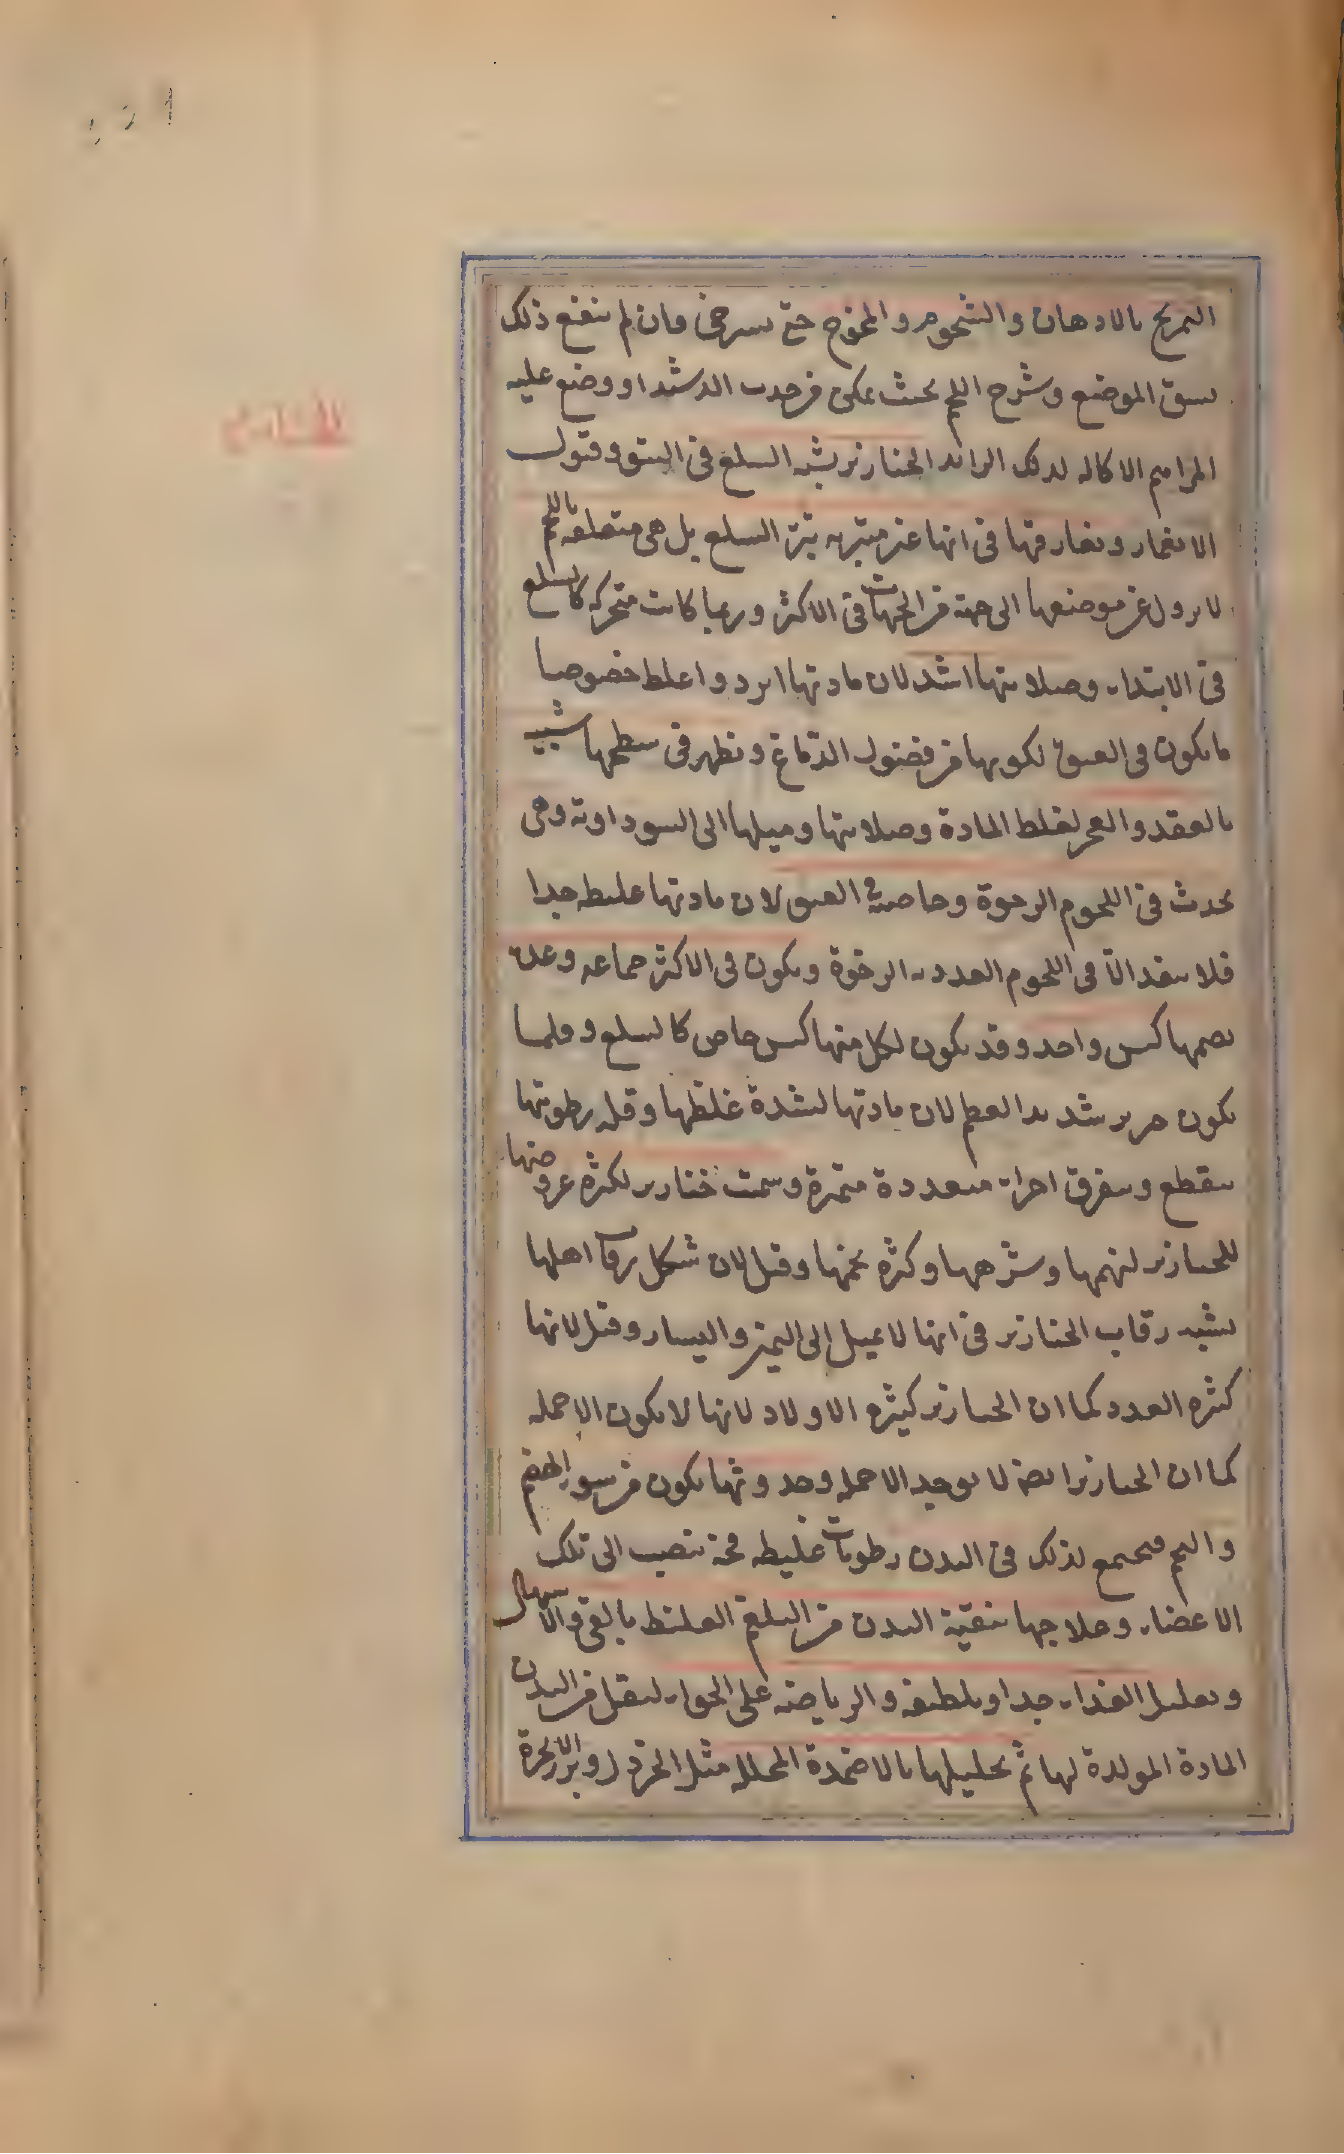 التمريخ بالادهان والشحوم والمخوخ حتى يسترخى فان لم ينفع ذلك
يشق الموضع وشرح اللحم بحيث يمكن من جذب الدشبد او وضع عليه
المراهم الاكاله لذلك الزائد الخنازير يشبه السلع فى التبثق وقبول
الانغمار ويفارقها فى انها غير متبرئه تبرى السلع بل هى متعلقه باللحم
لا يزول عن موضعها الى جهة من الجهات فى الاكثر وربما كانت متحركه كالسلع
فى الابتداء وصلابتها اشد لان مادتها ابرد واغلظ خصوصا
ما يكون فى العنق لكونها من فضول الدماغ ويظهر فى سطحها شبيه
بالعقد والعجر لغلظ المادة وصلابتها وميلها الى السوداوية وهى
يحدث فى اللحوم الرخوة وخاصة فى العنق لان مادتها غليظه جدا
فلا ينفذ الا فى اللحوم الغدديه الرخوة ويكون فى الاكثر جماعه وعدة
يضمها كيس واحد وقد يكون لكل منها كيس خاص كالسلع وقلما
يكون خنزير شديد العظم لان مادتها لشدة غلظها وقله رطوبتها
ينقطع ويتفرق اجزاء متعددة متميزة وسميت خنازير لكثرة عروضها
للخنازير لنهمها وشرهها وكثرة تخمها وقيل لان شكل رقاب اهلها
يشبه رقاب الخنازير فى انها لا يميل الى اليمين واليسار وقيل لانها
كثيره العدد كما ان الخنازير كثيره الاولاد لانها لا يكون الا جمله
كما ان الخنازير ايضا لا يوجد الا جمله وحدوثها يكون من سوء الهضم
والتخم فيجتمع لذلك فى البدن رطوبات غليظه فجه تنصب الى تلك
الاعضاء وعلاجها تنقية البدن من البلغم الغليظ بالقى والاسهال
وتقليل الغذاء جدا وتلطيفه والرياضه على الخواء ليقل من البدن
المادة المولدة لها ثم تحليلها بالاضمدة المحلله مثل الخردل وبزر الانجرة